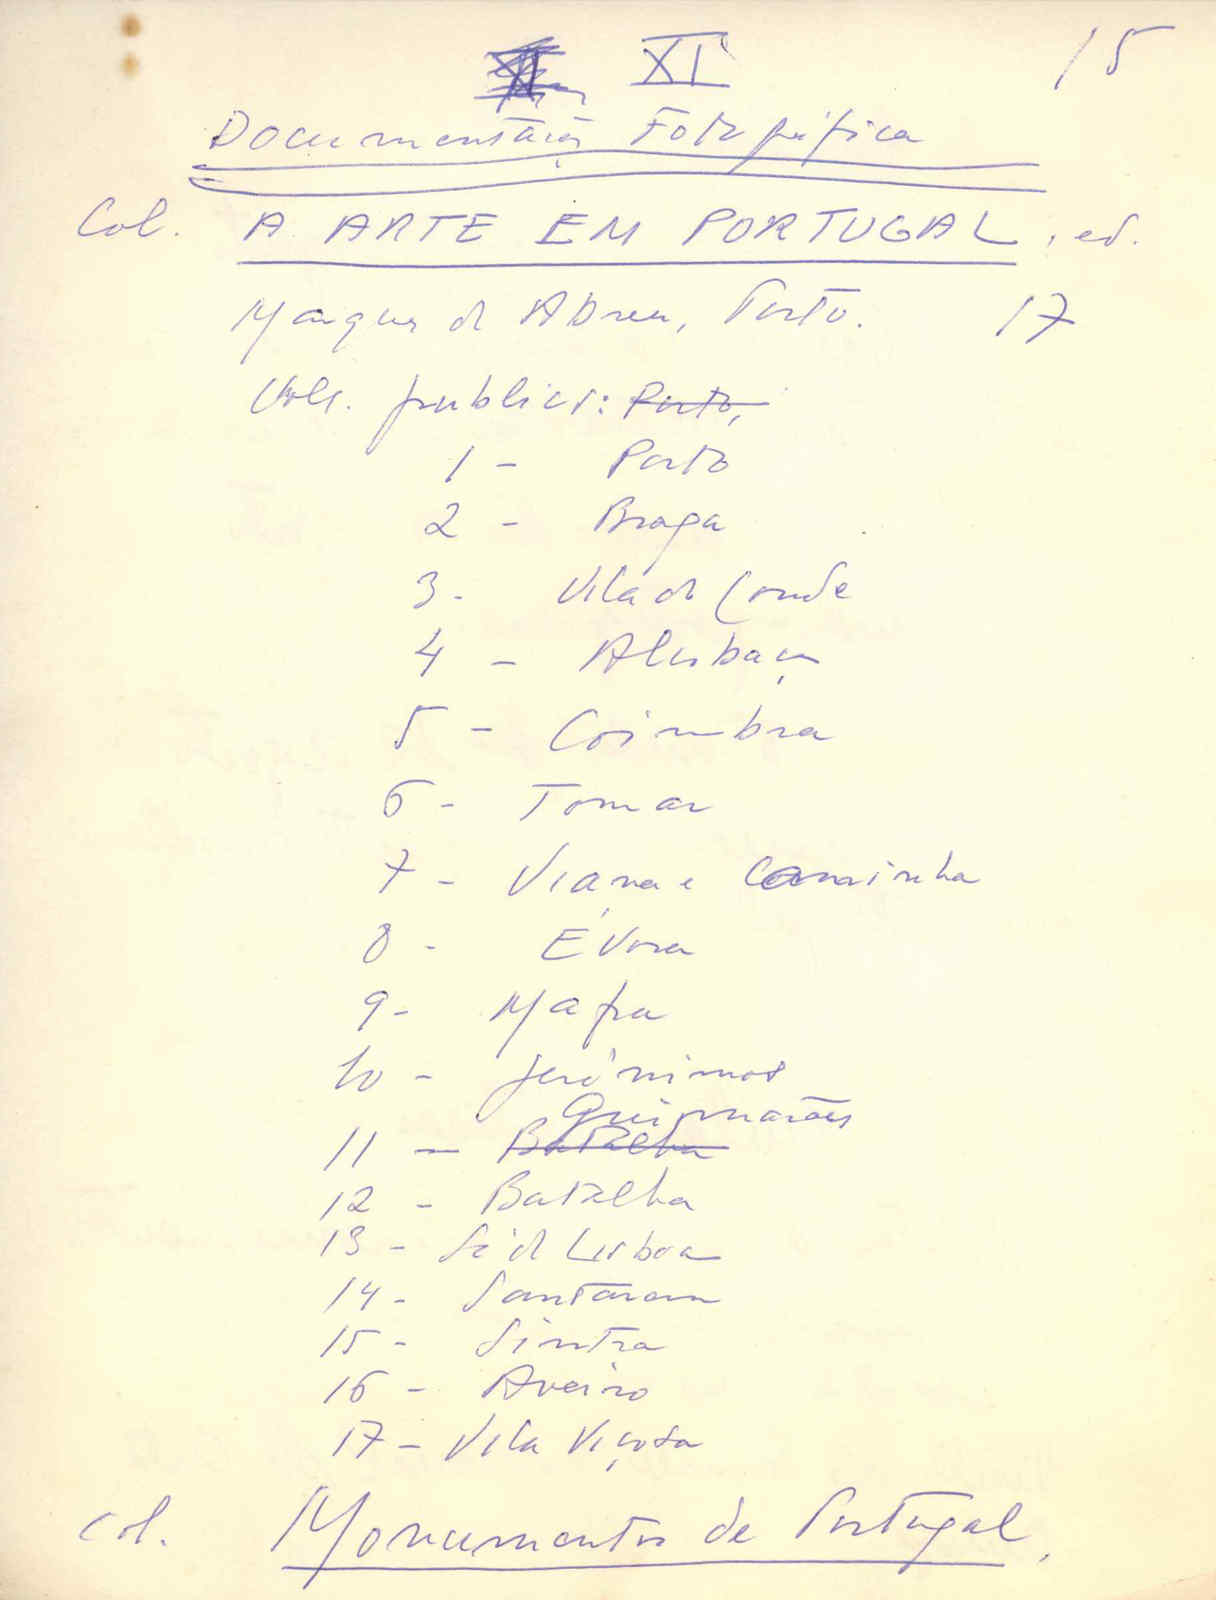 XI 15
Documentação Fotográfica
Col. A ARTE EM PORTUGAL, ed.
Marques de Abreu, Porto. 17
Vols. public.s: Porto,
1 - Porto
2 - Braga
3 - Vila do Conde
4 - Alcobaça
5 - Coimbra
6 - Tomar
7 - Viana e Caminha
8 - Évora
9 - Mafra
10 - Jerónimos
Guimarães
11 - Batalha
12 - Batalha
13 - Sé de Lisboa
14 - Santarem
15 - Sintra
16 - Aveiro
17 - Vila Viçosa
Col. Monumentos de Portugal,